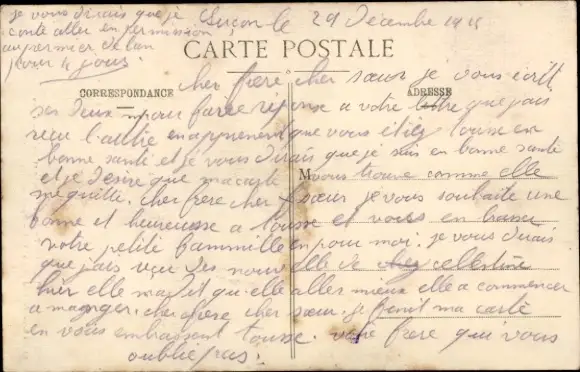 je vous dirais que je
conte aller en permission
au premier de lan
pour 4 jours.
Luçon le 29 Décembre 1915
CARTE POSTALE
CORRESPONDANCE
ADRESSE
cher frère cher sœur je vous écrit
ses deux mot pour faire réponse a votre lettre que jais
recu l'autre en apprenent que vous étiez tousse en
bonne santé et je vous dirais que je suis en bonne santé
et je désire que ma carte vous trouve comme elle
me quitte. cher frère cher sœur je vous souhaite une
bonne et heureusse a tousse et vous en brasser
votre petite fammille en pour moi. je vous dirais
que jais recu des nouvelle de chez celestine
hier elle ma dit qu'elle aller mieux elle a commencer
a manger. cher frère cher sœur. je finit ma carte
en vous embrassent tousse. votre frère qui vous
oublie pas.